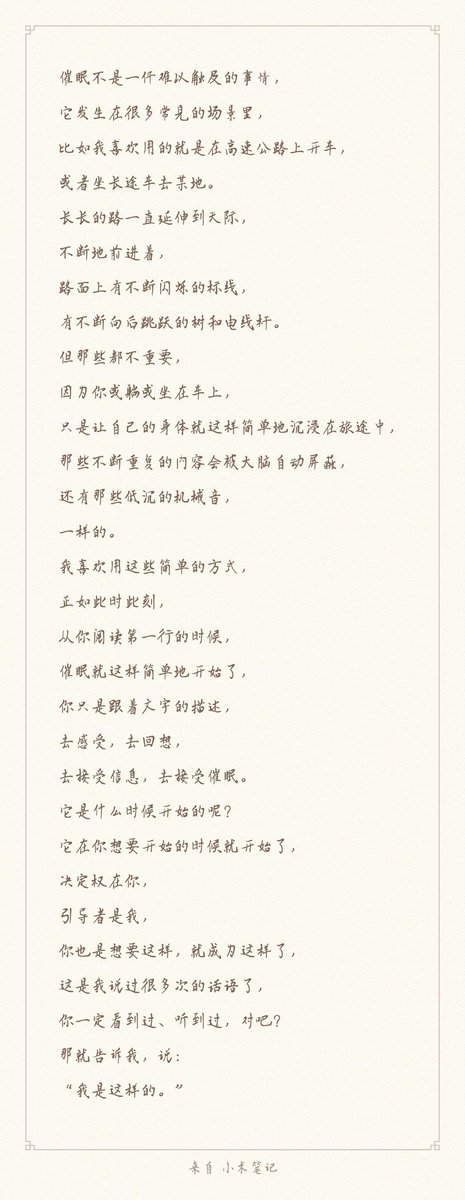 催眠不是一件难以触及的事情，
它发生在很多常见的场景里，
比如我喜欢用的就是在高速公路上开车，
或者坐长途车去某地。
长长的路一直延伸到天际，
不断地前进着，
路面上有不断闪烁的标线，
有不断向后跳跃的树和电线杆。
但那些都不重要，
因为你或躺或坐在车上，
只是让自己的身体就这样简单地沉浸在旅途中，
那些不断重复的内容会被大脑自动屏蔽，
还有那些低沉的机械音，
一样的。
我喜欢用这些简单的方式，
正如此时此刻，
从你阅读第一行的时候，
催眠就这样简单地开始了，
你只是跟着文字的描述，
去感受，去回想，
去接受信息，去接受催眠。
它是什么时候开始的呢？
它在你想要开始的时候就开始了，
决定权在你，
引导者是我，
你也是想要这样，就成为这样了，
这是我说过很多次的话语了，
你一定看到过、听到过，对吧？
那就告诉我，说：
“我是这样的。”
来自 小米笔记